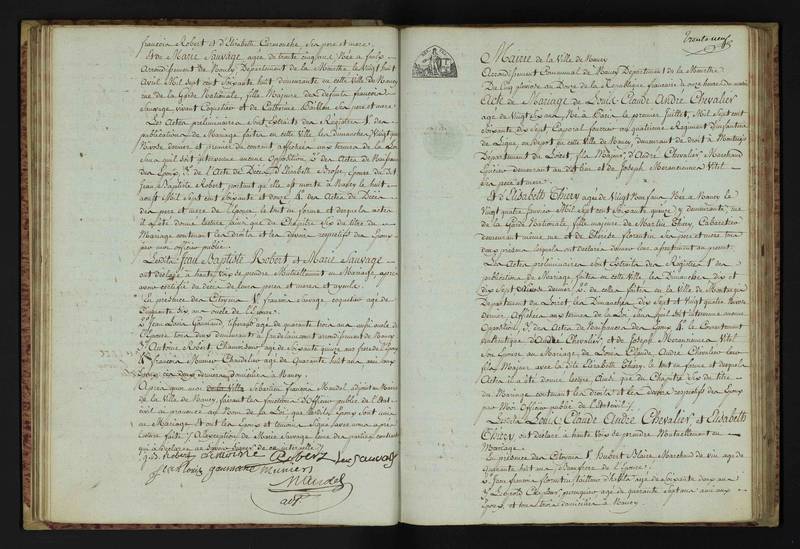 françois Robert et d'Elizabeth Carmouche, ses pere et mere.
Et de Marie Sauvage agée de trente cinq ans Née à
Arrondissement de Departement de la Meurthe le Vingt huit
Avril Mil Sept cent soixante huit demeurante en cette Ville de Nancy
rue de la Garde Nationale, fille Majeure des defunts françois
Sauvage vivant Coquetier et de Catherine ses pere et mere
Les Actes preliminaires sont Extraits des Registres 1° des
publications de Mariage faites en cette Ville les dimanches Vingt
Nivose dernier et premier du courant affichées aux termes de la Loi
sans qu'il soit intervenu aucune Opposition 2° des Actes de Naissance
des Epoux 3° de l'Acte de Décès d'Elizabeth Epouse du dit
Jean Baptiste Robert, portant qu'elle est morte à Nancy le huit
aoust Mil Sept cent soixante et douze 4° des Actes de Décès
des pere et mere de l'Epouse le tout en forme et desquels actes
il a été donné lecture ainsi que du Chapitre Six du titre du
Mariage contenant les droits et les devoirs respectifs des Epoux
par moi officier public.
Lesdits Jean Baptiste Robert et Marie Sauvage
ont déclaré à haute Voix se prendre Mutuellement en Mariage, après
avoir certifié le décès de leurs peres et meres et ayeuls.
En presence des Citoyens 1° françois Sauvage coquetier agé de
Cinquante six ans oncle de l'Epouse.
2° Jean Louis agé de quarante trois ans aussi oncle de
l'Epouse tous deux demeurants à arrondissement de Nancy
3° Antoine Robert Chamoiseur agé de Soixante quinze ans frere de l'Epoux
4° françois Meunier Chandelier agé de Quarante huit ans ami des
Epoux ces deux derniers domiciliés à Nancy.
Après quoi moi Sebastien françois Mandel adjoint au Maire
de la Ville de Nancy, faisant les fonctions d'Officier public de l'Etat
civil ai prononcé au Nom de la Loi que lesdits Epoux sont unis
en Mariage Et ont les Epoux et temoins Signé avec moi après
lecture faite à l'exception de Marie Sauvage l'une des parties contractantes
qui a déclaré ne savoir signer de ce interpellée
Robert antoine Robert Sauvage
Jean Louis meunier
Mandel
adj.
trente neuf
Mairie de la Ville de Nancy
Arrondissement Communal de Nancy Departement de la Meurthe
Du Cinq pluviose an Douze de la Republique française à onze heures du matin
Acte de Mariage de Louis Claude André Chevalier
agé de Vingt Six ans Né à Paris le premier Juillet, Mil Sept cent
Soixante dix sept Caporal fourrier au quatrieme Regiment d'Infanterie
de Ligne en depot en cette Ville de Nancy, demeurant de droit à
Departement du Loiret, fils Majeur d'André Chevalier Marchand
Epicier demeurant au dit lieu et de Joseph Vital
ses pere et mere
Et d'Elisabeth Thiery agée de Vingt Neuf ans Née à Nancy le
Vingt quatre Mil Sept cent Soixante quinze y demeurante, rue
de la Garde Nationale, fille majeure de Martin Thiery, Cabaretier
demeurant même rue et de Therese florentin ses pere et mere tous
deux presens lesquels ont déclaré donner leur agrement au present.
Les Actes preliminaires sont Extraits des Registres 1° des
publications de Mariage faites en cette Ville, les Dimanches dix et
dix sept Nivose dernier 2° de celles faites en la Ville de
Departement du Loiret les Dimanches dix Sept et Vingt quatre Nivose
dernier. Affichées aux termes de la Loi sans qu'il soit intervenu aucune
Opposition 3° des Actes de Naissances des Epoux 4° le Consentement
authentique d'André Chevalier, et de Joseph Vital
Son Epouse au Mariage de Louis Claude André Chevalier leur
fils Majeur avec la dite Elisabeth Thiery, le tout en forme et desquels
Actes il a été donné lecture, ainsi que du Chapitre Six du titre
du Mariage contenant les droits et les devoirs respectifs des Epoux
par Moi Officier Public de l'Etat Civil
Lesdits Louis Claude André Chevalier et Elisabeth
Thiery, ont déclaré à haute Voix se prendre Mutuellement en
Mariage.
En presence des Citoyens 1° Hubert Hilaire Marchand de vin agé de
quarante huit ans de l'Epouse.
2° Jean françois florentin tailleur d'habits agé de Soixante deux ans
3° Leopold perruquier, agé de quarante Sept ans ami des
Epoux et tous trois domiciliés à Nancy